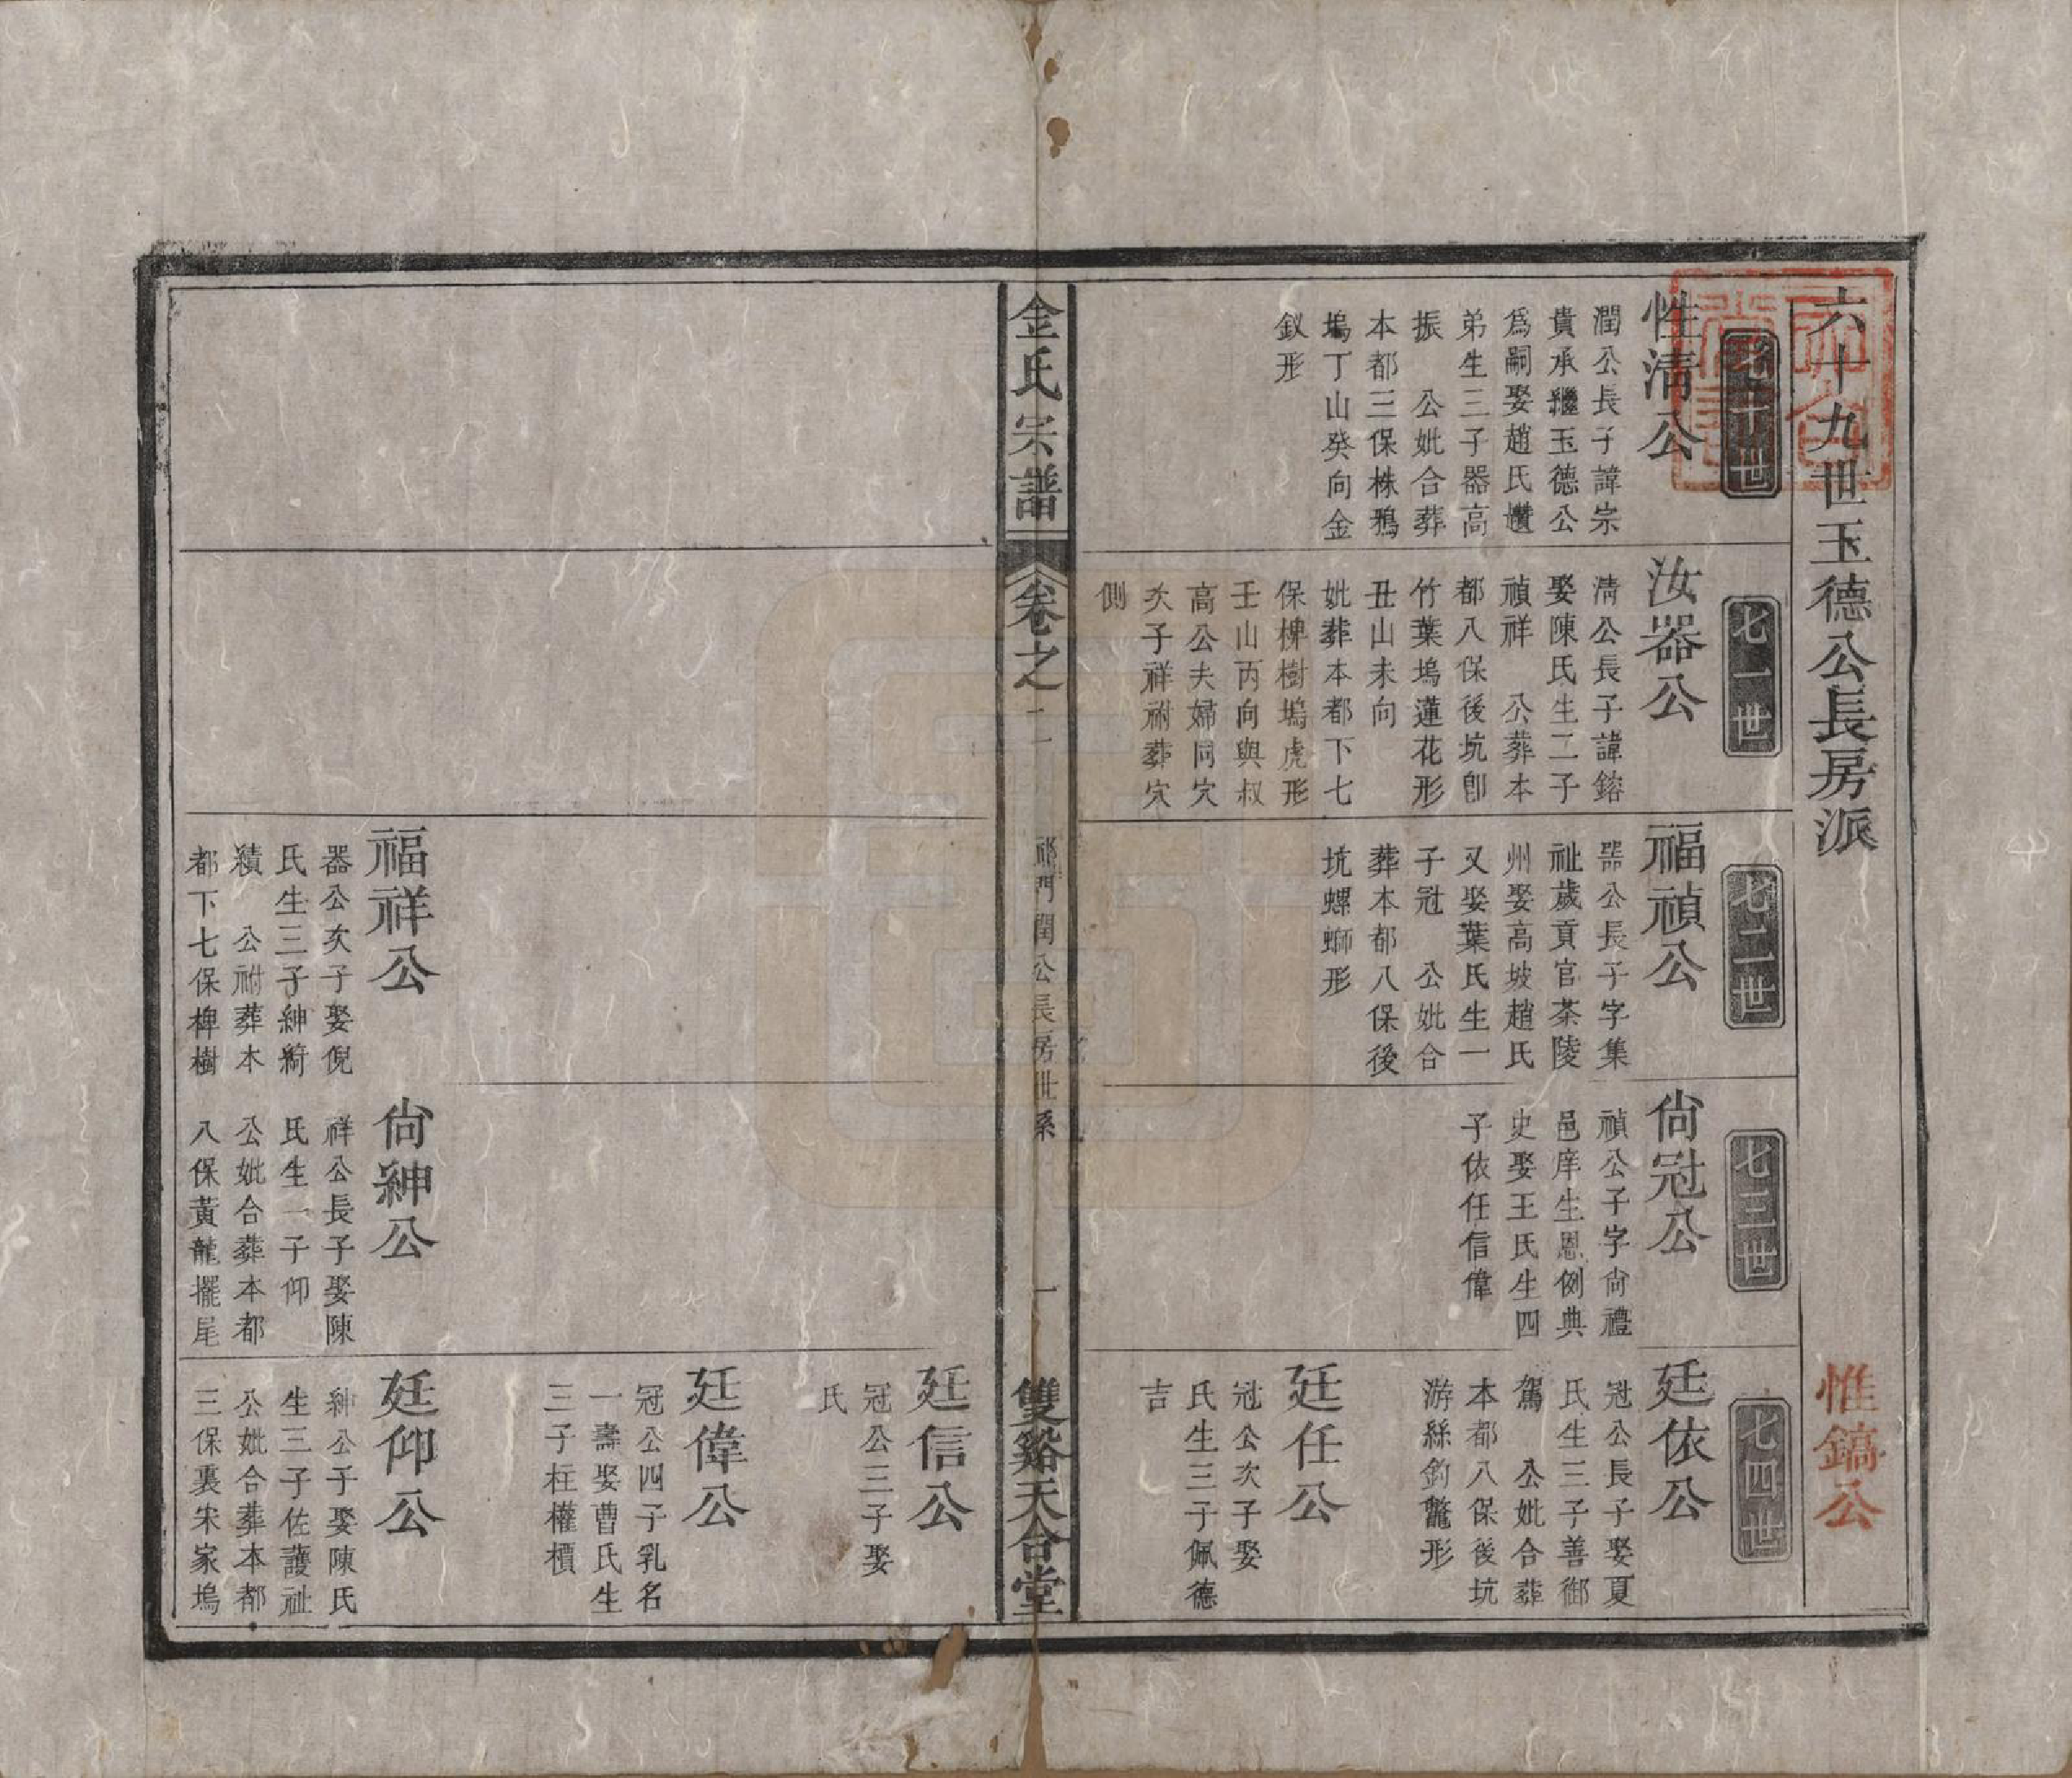 六十九世玉德公長房派
惟鎬公
七十世
性淸公
潤公長子諱宗
貴承繼玉德公
爲嗣娶趙氏讚
弟生三子器高
振　公妣合葬
本都三保株鴉
塢丁山癸向金
釵形
七一世
汝器公
淸公長子諱鎔
娶陳氏生二子
禎祥　公葬本
都八保後坑卽
竹葉塢蓮花形
丑山未向
妣葬本都下七
保椑樹塢虎形
壬山丙向與叔
高公夫婦同穴
次子祥祔葬穴
側
七二世
福禎公
器公長子字集
祉歲貢官茶陵
州娶高坡趙氏
又娶葉氏生一
子冠　公妣合
葬本都八保後
坑螺螄形
七三世
尙冠公
禎公子字尙禮
邑庠生恩例典
史娶王氏生四
子依任信偉
七四世
廷依公
冠公長子娶夏
氏生三子善御
駕　公妣合葬
本都八保後坑
游絲釣鼈形
廷任公
冠公次子娶
氏生三子佩德
吉
金氏宗譜
卷之二
祁門潤公長房世系
一
雙谿天合堂
廷信公
冠公三子娶
氏
廷偉公
冠公四子乳名
一壽娶曹氏生
三子柱權檟
福祥公
器公次子娶倪
氏生三子紳綺
績　公祔葬本
都下七保椑樹
尙紳公
祥公長子娶陳
氏生一子仰
公妣合葬本都
八保黃龍擺尾
廷仰公
紳公子娶陳氏
生三子佐護祉
公妣合葬本都
三保裏宋家塢